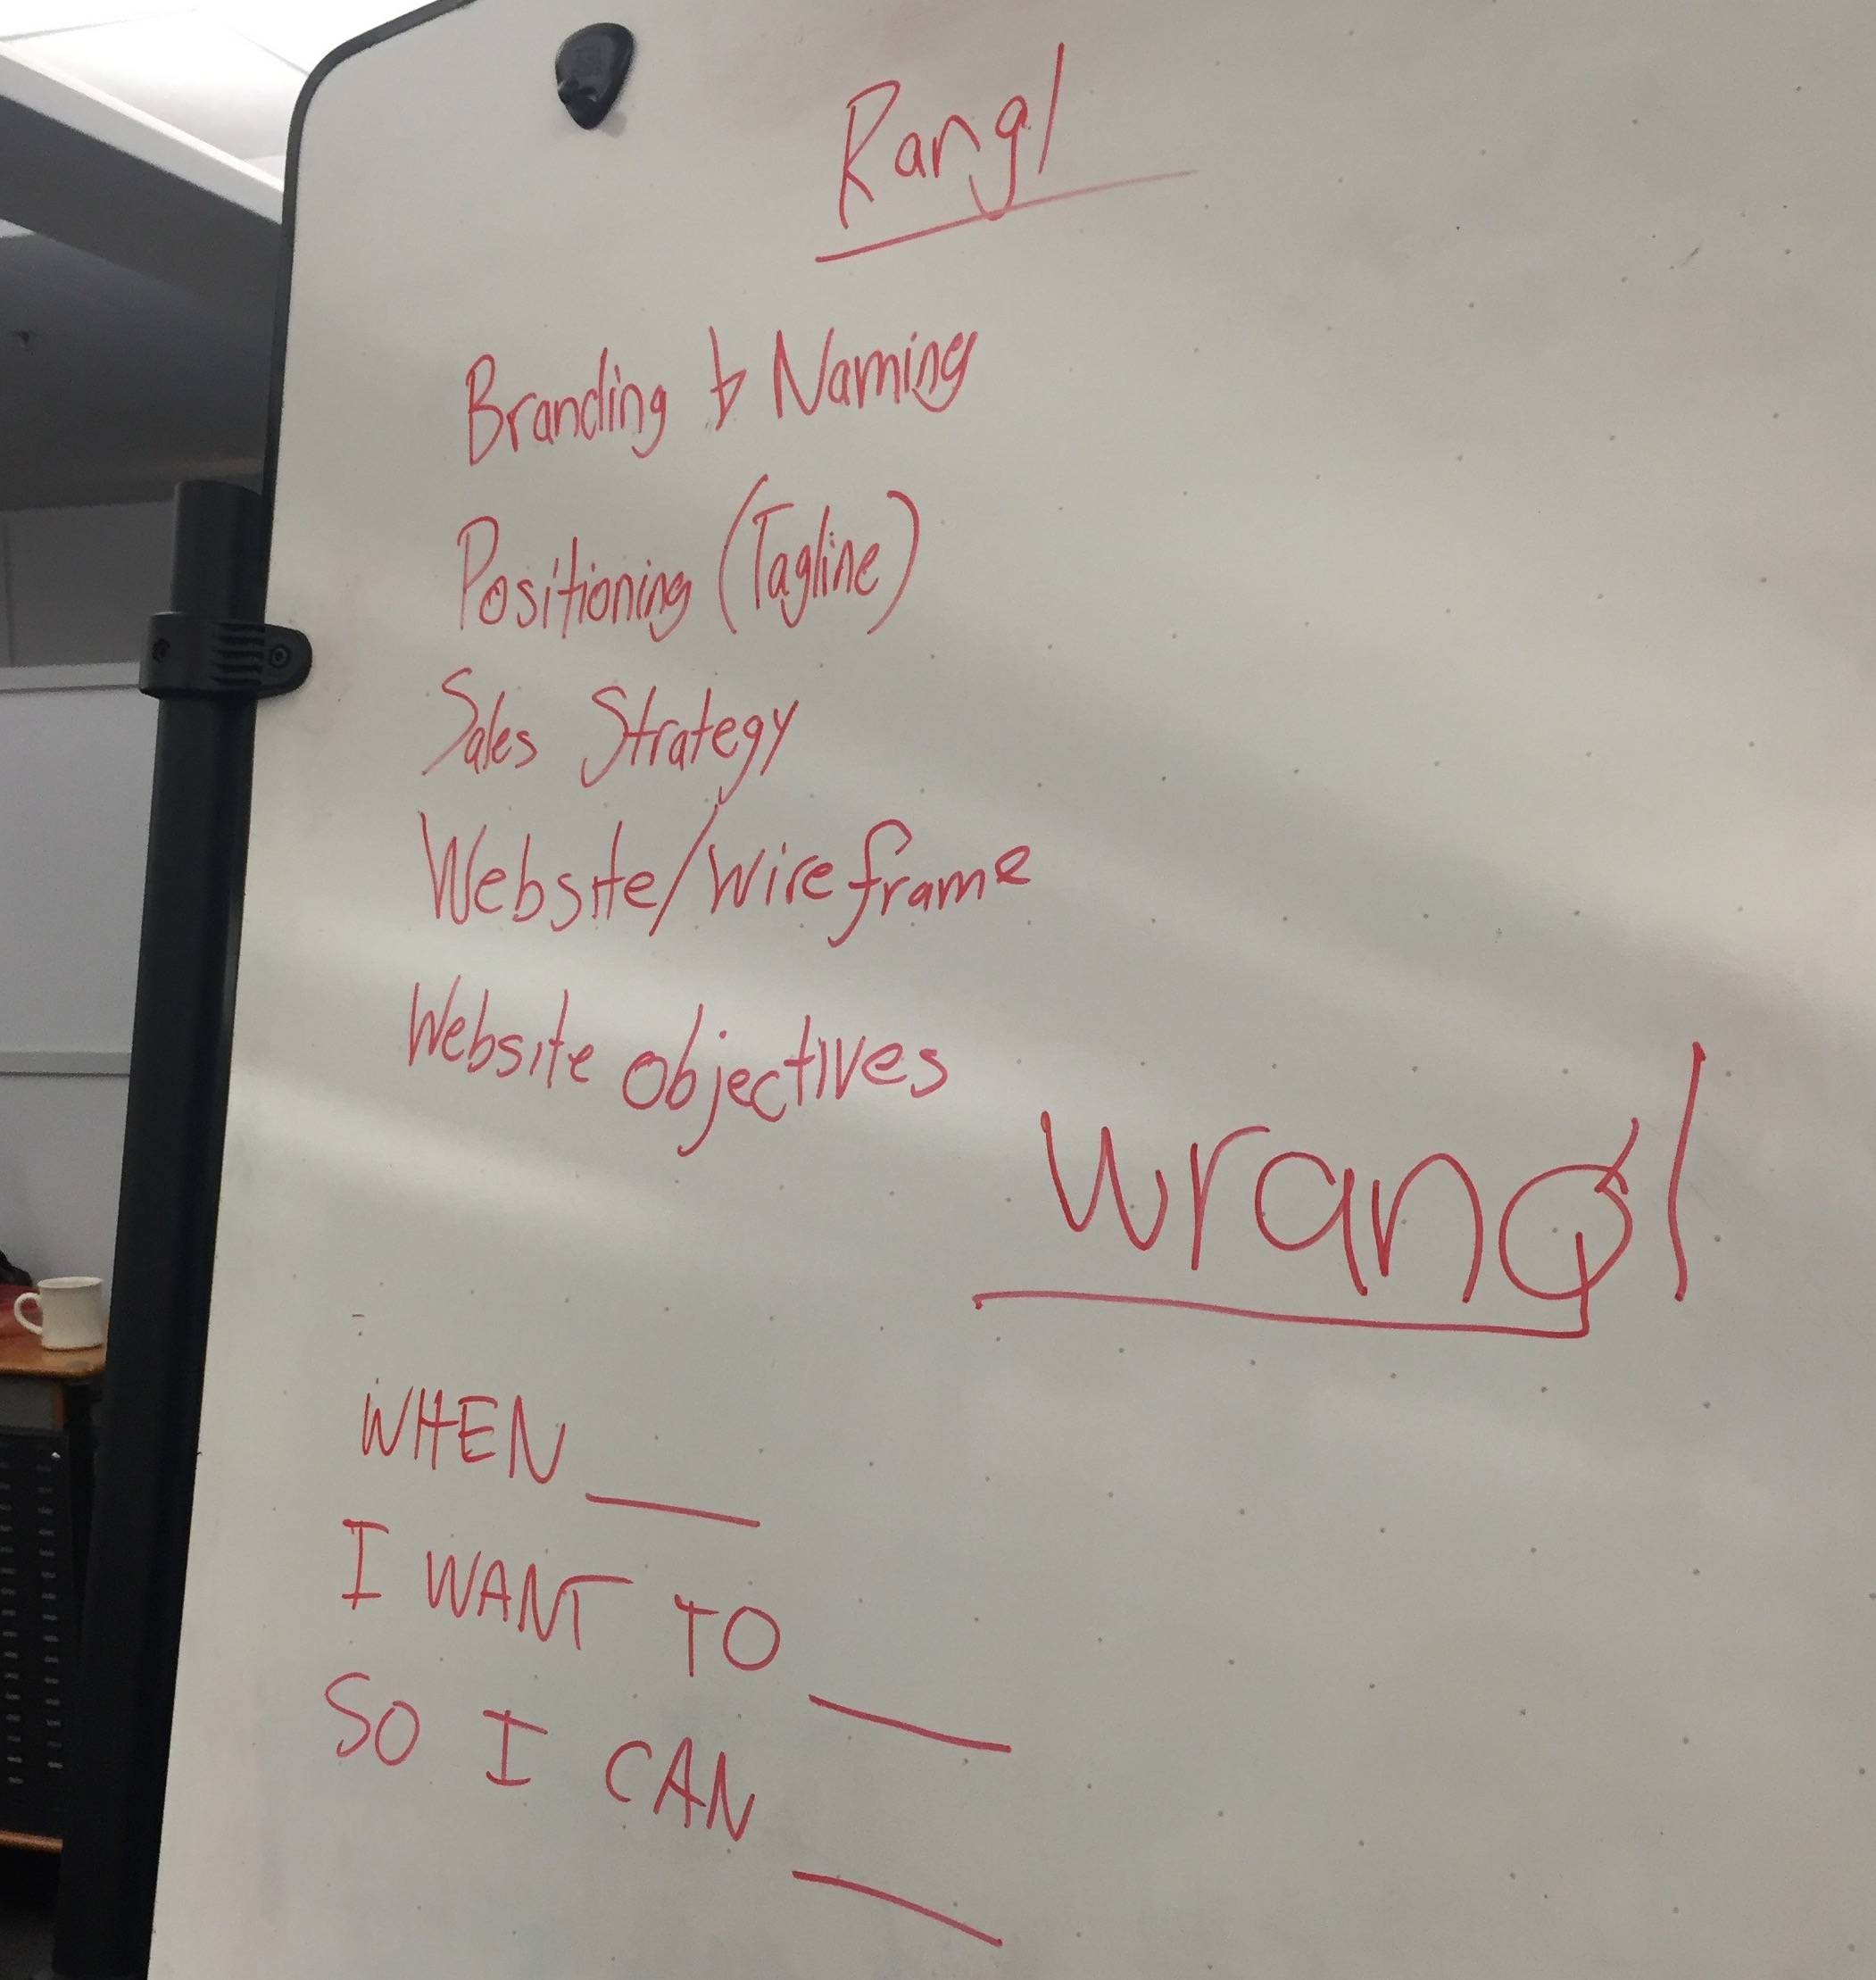 Rangl
Branding & Naming
Positioning (Tagline)
Sales Strategy
Website/Wireframe
Website objectives
wrangl
WHEN ____
I WANT TO ____
SO I CAN ____